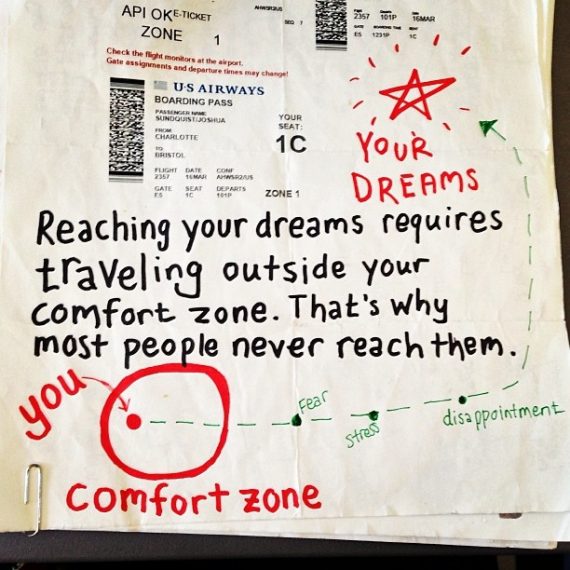 API OK E-TICKET
AHWSR2/US
SEQ 7
ZONE 1
2357 101P 16MAR
GATE BOARDING TIME SEAT
E5 1231P 1C
Check the flight monitors at the airport.
Gate assignments and departure times may change!
U·S AIRWAYS
BOARDING PASS
PASSENGER NAME
SUNDQUIST/JOSHUA
FROM
CHARLOTTE
TO
BRISTOL
YOUR
SEAT:
1C
FLIGHT DATE CONF
2357 16MAR AHWSR2/US
GATE SEAT DEPARTS
E5 1C 101P
ZONE 1
YOUR
DREAMS
Reaching your dreams requires
traveling outside your
comfort zone. That's why
most people never reach them.
you
Fear
stress
disappointment
comfort zone